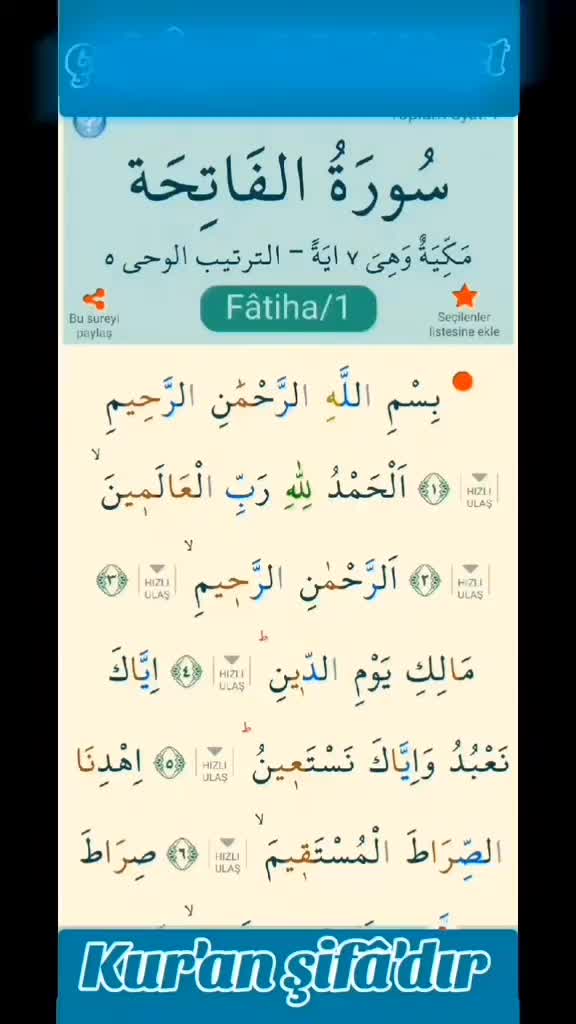 سُورَةُ الفَاتِحَة
مَكِّيَةٌ وَهِىَ ٧ ايَةً – الترتيب الوحى ٥
Bu sureyi paylaş
Fâtiha/1
Seçilenler listesine ekle
بِسْمِ اللَّهِ الرَّحْمٰنِ الرَّحِيمِ
﴿١﴾ HIZLI ULAŞ اَلْحَمْدُ لِلّٰهِ رَبِّ الْعَالَمِينَۙ
﴿٢﴾ HIZLI ULAŞ اَلرَّحْمٰنِ الرَّحِيمِۙ ﴿٣﴾ HIZLI ULAŞ
مَالِكِ يَوْمِ الدِّينِۜ ﴿٤﴾ HIZLI ULAŞ اِيَّاكَ
نَعْبُدُ وَاِيَّاكَ نَسْتَعِينُۜ ﴿٥﴾ HIZLI ULAŞ اِهْدِنَا
الصِّرَاطَ الْمُسْتَقِيمَۙ ﴿٦﴾ HIZLI ULAŞ صِرَاطَ
Kur'an şifâ'dır